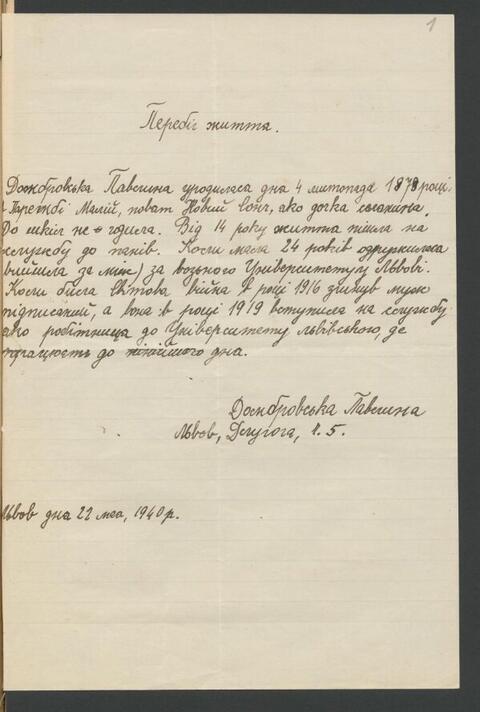 1
Перебіг життя.
Домбровська Павлина уродилася дна 4 листопада 1878 році,
Парембі Малій, повіт Новий Сонч, ако дочка селянина.
До шкіл не ходила. Від 14 року життя пішла на
службу до панів. Коли мала 24 років одружилася
(вийшла за муж) за возного Університету у Львові.
Коли була світова війна в році 1916 згинув муж
підписаний, а вона в році 1919 вступила на службу
ако робітниця до Університету львівського, де
працюєть до нинійшого дна.
Домбровська Павлина
Львов, Длугога, ч. 5.
Львов дна 22 мая, 1940 р.